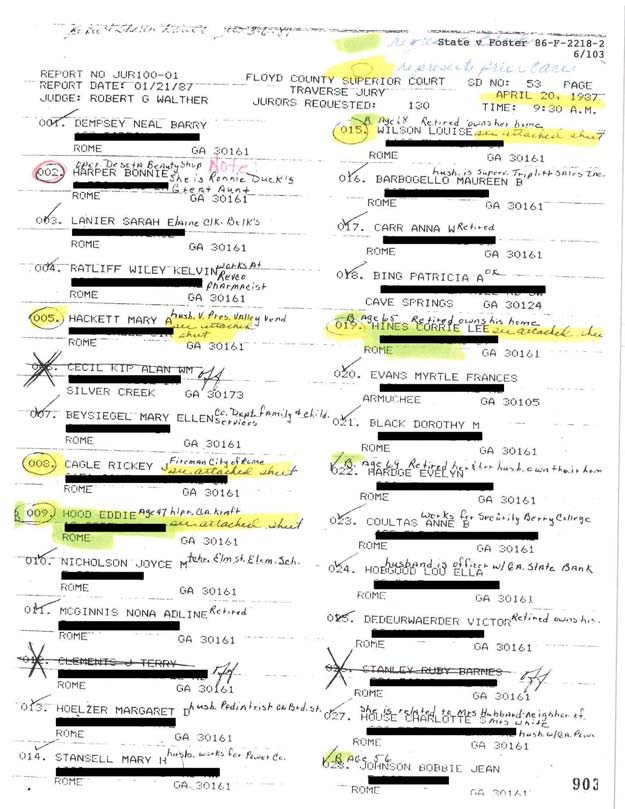 State v Foster 86-F-2218-2
6/103
represents
represents prior case
REPORT NO JUR100-01
REPORT DATE: 01/21/87
JUDGE: ROBERT G WALTHER
FLOYD COUNTY SUPERIOR COURT
TRAVERSE JURY
JURORS REQUESTED: 130
SD NO: 53 PAGE
APRIL 20, 1987
TIME: 9:30 A.M.
001. DEMPSEY NEAL BARRY
ROME GA 30161
oper. Deseta Beauty Shop Note
002. HARPER BONNIE
She is Ronnie Duck's
Great Aunt
ROME GA 30161
003. LANIER SARAH Elaine Clk-Belk's
ROME GA 30161
004. RATLIFF WILEY KELVIN works At
Revco
pharmacist
ROME GA 30161
005. HACKETT MARY A hush. V. Pres. Valley Vend
see attached
sheet
ROME GA 30161
006. CECIL KIP ALAN WM off
SILVER CREEK GA 30173
007. BEYSIEGEL MARY ELLEN Co. Dept. family & Child.
Services
ROME GA 30161
008. CAGLE RICKEY J Fireman City of Rome
see attached sheet
ROME GA 30161
B 009. HOOD EDDIE Age 47 hlpr. Ga. Kraft
see attached sheet
ROME GA 30161
010. NICHOLSON JOYCE M tchr. Elm. st. Elem. Sch.
ROME GA 30161
011. MCGINNIS NONA ADLINE Retired
ROME GA 30161
012. CLEMENTS J TERRY
off
ROME GA 30161
013. HOELZER MARGARET D hush. Podiatrist on Brd. st.
ROME GA 30161
014. STANSELL MARY H husb. works for Power Co.
ROME GA 30161
B Age 68 Retired owns her home
015. WILSON LOUISE see attached sheet
ROME GA 30161
hush. is Superv. Triplett Sales Inc.
016. BARBOGELLO MAUREEN B
ROME GA 30161
017. CARR ANNA W Retired
ROME GA 30161
018. BING PATRICIA A OK
CAVE SPRINGS GA 30124
B Age 65 Retired owns his home
019. HINES CORRIE LEE see attached
ROME GA 30161
020. EVANS MYRTLE FRANCES
ARMUCHEE GA 30105
021. BLACK DOROTHY M
ROME GA 30161
B Age 64 Retired her & her hush. own their hom
022. HARDGE EVELYN
ROME GA 30161
works for Security Berry College
023. COULTAS ANNE B
ROME GA 30161
husband is officer w/GA. State Bank
024. HOBGOOD LOU ELLA
ROME GA 30161
025. DEDEURWAERDER VICTOR Retired owns his
ROME GA 30161
026. STANLEY RUBY BARNES
off
ROME GA 30161
She is related to Mrs Hubbard-neighbor of
027. HOUSE CHARLOTTE S Mrs White
hush. w/Ga. Powr
ROME GA 30161
B Age 56
028. JOHNSON BOBBIE JEAN
ROME GA 30161
903